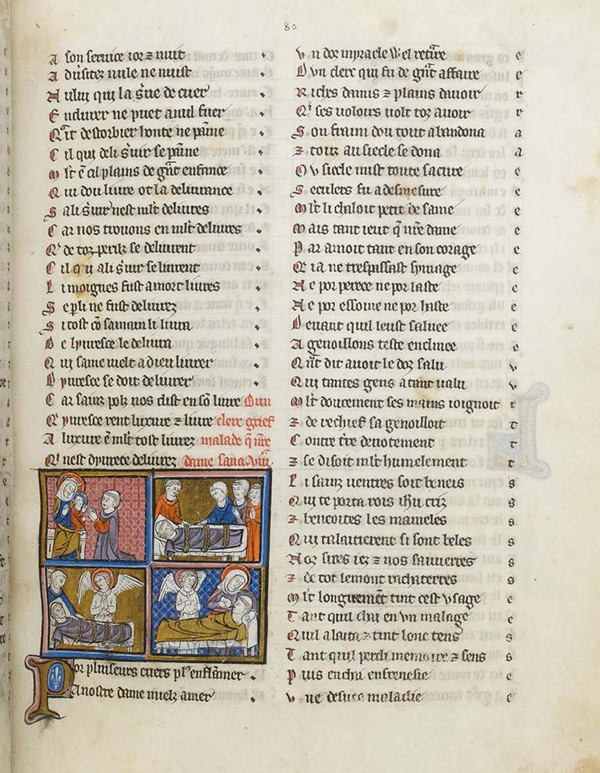 80
A son service ior z nuit
A diu sitez nule ne nuist
A celui qui la s'ue de cuer
Endurer ne puet anul fuer
Q'it destorbier honte ne paine
C il qui deli s'uir se paine
M lt ē cil plains de g'nt enfance
Q ui dou liure ot la deliurance
S ali s'uir nest mlt deliures
C ar nos trouons en mlt de liures
Q' de toz perilz se deliurent
C il q'i a li s'uir se liurent
L i moignes fust a mort liures
S e p li ne fust deliurez
S i tost cō sa main li liura
D e lyuresce le deliura
Q ui s'ame uielt a dieu liurer
D yuresce se doit deliurer
C ar sainz polz nos dist en sō liure
Q' yuresce rent luxure z liure
A luxure ē mlt tost liurez
Q' nest dyurece deliurez
Dun
clerc grief
malade q' n're
dame sana .VIII.
P or pluiseurs cuers pl' enflamer
A nostre dame mielz amer
V n doz myracle uoel retrere
D un clerc qui fu de g'nt affaire
R iches damis z plains dauoir
Q' ses uoloirs uolt toz auoir
S on fraim dou tout abandona
Z touz au siecle se dona
O u siecle mist toute sa cure
S eculers fu a desmesure
M lt li chaloit petit de same
M ais tant i eut q' n're dame
P ar amoit tant en son corage
Q' ia ne trespassast symage
N e por perece ne por laste
N e por essoine ne por haste
D euant qui leust saluee
A genoillons teste enclinee
Q'nt dit auoit le doz salu
Q ui tantes gens a tant ualu
M lt doucement ses mains ioignoit
Z de rechief sa genoilloit
C ontre t're deuotement
Z se disoit mlt humelement
L i sainz uentres soit beneis
Q ui te porta rois ihū cris
Z beneoites les mameles
Q ui talaitierent si sont beles
N os sires iez z nos sauueres
Z de tot le mont rachateres
M lt longuement tint cest usage
T ant quil chai en un malage
Q uil alaita z tint lonc tens
T ant quil perdi memoire z sens
P uis enchai en frenesie
V ne desuee maladie